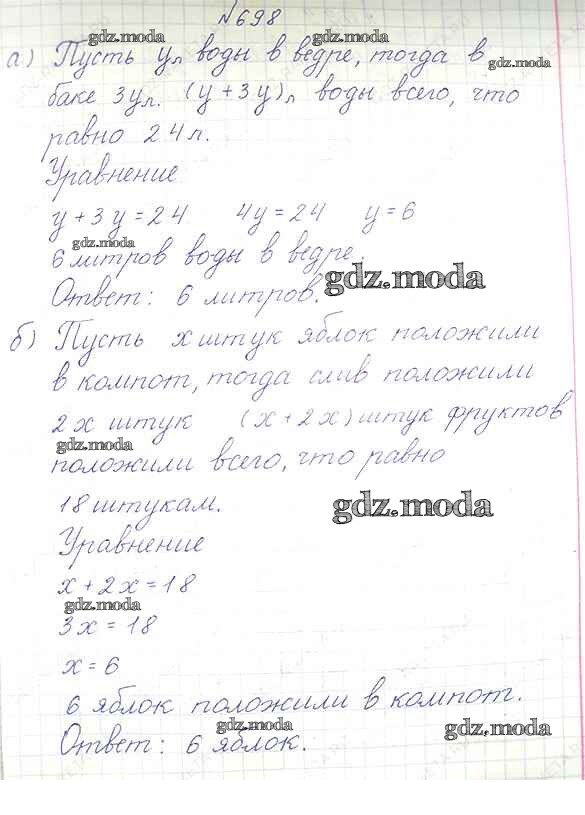 №698
gdz.moda gdz.moda
а) Пусть y л воды в ведре, тогда в
gdz.moda
баке 3y л. (y + 3y) л воды всего, что
равно 24 л.
Уравнение
y + 3y = 24 4y = 24 y = 6
gdz.moda
6 литров воды в ведре.
gdz.moda
Ответ: 6 литров.
б) Пусть x штук яблок положили
в компот, тогда слив положили
2x штук (x + 2x) штук фруктов
gdz.moda
положили всего, что равно
18 штукам.
gdz.moda
Уравнение
x + 2x = 18
gdz.moda
3x = 18
x = 6
6 яблок положили в компот.
gdz.moda gdz.moda
Ответ: 6 яблок.